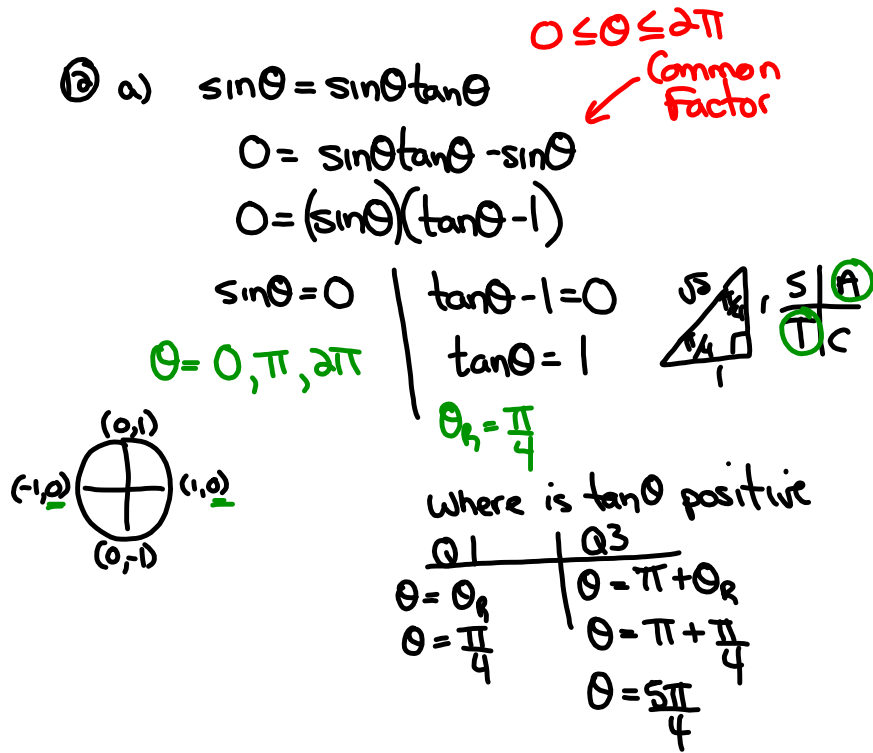 0 ≤ θ ≤ 2π
Common
Factor
12 a) sinθ = sinθtanθ
0 = sinθtanθ - sinθ
0 = (sinθ)(tanθ - 1)
sinθ = 0
θ = 0, π, 2π
(0,1)
(-1,0) (1,0)
(0,-1)
tanθ - 1 = 0
tanθ = 1
θR = π/4
√2 π/4 1
π/4
1
S A
T C
where is tanθ positive
Q1 Q3
θ = θR θ = π + θR
θ = π/4 θ = π + π/4
θ = 5π/4